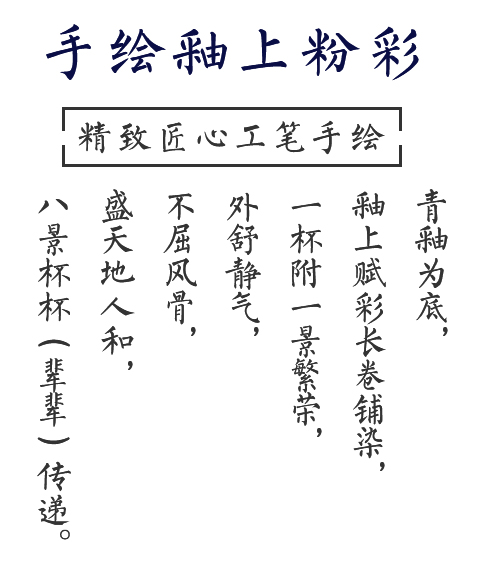 手绘釉上粉彩
精致匠心工笔手绘
青釉为底，
釉上赋彩长卷铺染，
一杯附一景繁荣，
外舒静气，
不屈风骨，
盛天地人和，
八景杯杯（辈辈）传递。